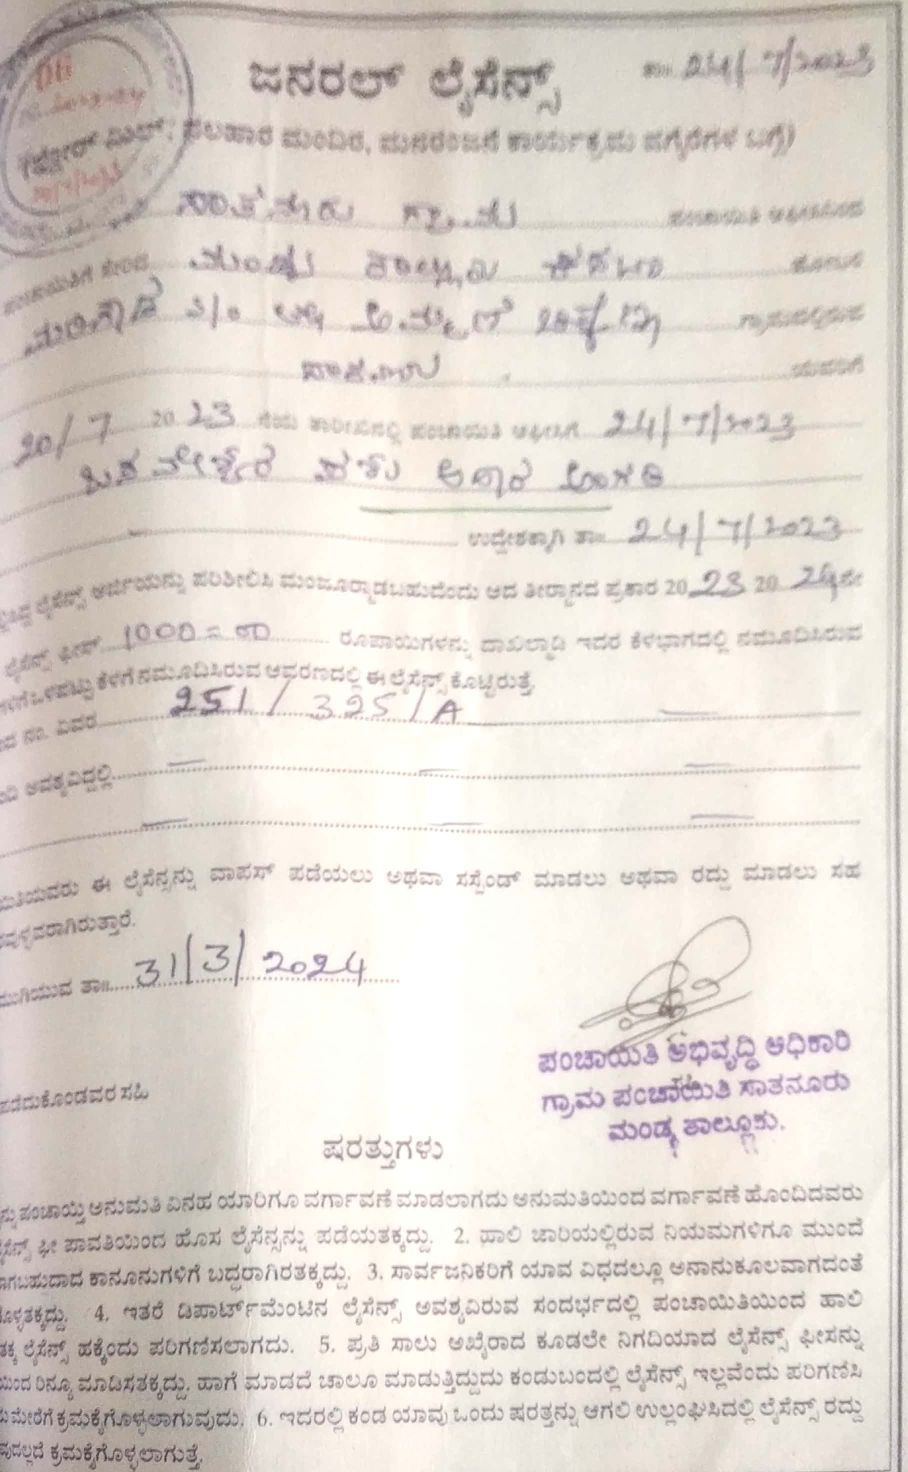 ಜನರಲ್ ಲೈಸೆನ್ಸ್
ತಾ॥ 24/7/2023
ಫಲಹಾರ ಮಂದಿರ, ಮನರಂಜನೆ ಕಾರ್ಯಕ್ರಮ ವಗೈರೆಗಳ ಬಗ್ಗೆ)
ಸಾತನೂರು ಗ್ರಾಮ ಪಂಚಾಯಿತಿ
ಮಂಡ್ಯ ತಾಲ್ಲೂಕು ಕಸಬಾ ಹೋಬಳಿ
S/o ಗ್ರಾಮದಲ್ಲಿರುವ
ಯವರಿಗೆ
20/7 2023 ನೆಯ ತಾರೀಖಿನಲ್ಲಿ ಪಂಚಾಯಿತಿ ಆಫೀಸಿಗೆ 24/7/2023
ಅಂಗಡಿ
ಉದ್ದೇಶಕ್ಕಾಗಿ ತಾ॥ 24/7/2023
ಲೈಸೆನ್ಸ್ ಅರ್ಜಿಯನ್ನು ಪರಿಶೀಲಿಸಿ ಮಂಜೂರ್ಮಾಡಬಹುದೆಂದು ಆದ ತೀರ್ಮಾನದ ಪ್ರಕಾರ 2023 2024ನೇ
ಲೈಸೆನ್ಸ್ ಫೀಸ್ 1000=00 ರೂಪಾಯಿಗಳನ್ನು ದಾಖಲ್ಮಾಡಿ ಇದರ ಕೆಳಭಾಗದಲ್ಲಿ ನಮೂದಿಸಿರುವ
ಒಳಪಟ್ಟು ಕೆಳಗೆ ನಮೂದಿಸಿರುವ ಆವರಣದಲ್ಲಿ ಈ ಲೈಸೆನ್ಸ್ ಕೊಟ್ಟಿರುತ್ತೆ.
ನಂ. ವಿವರ 251/325/A
ಅವಶ್ಯವಿದ್ದಲ್ಲಿ
ಈ ಲೈಸೆನ್ಸನ್ನು ವಾಪಸ್ ಪಡೆಯಲು ಅಥವಾ ಸಸ್ಪೆಂಡ್ ಮಾಡಲು ಅಥವಾ ರದ್ದು ಮಾಡಲು ಸಹ
ಮುಗಿಯುವ ತಾ॥ 31/3/2024
ಪಂಚಾಯಿತಿ ಅಭಿವೃದ್ಧಿ ಅಧಿಕಾರಿ
ಗ್ರಾಮ ಪಂಚಾಯಿತಿ ಸಾತನೂರು
ಮಂಡ್ಯ ತಾಲ್ಲೂಕು.
ಪಡೆದುಕೊಂಡವರ ಸಹಿ
ಷರತ್ತುಗಳು
ಪಂಚಾಯ್ತಿ ಅನುಮತಿ ವಿನಹ ಯಾರಿಗೂ ವರ್ಗಾವಣೆ ಮಾಡಲಾಗದು ಅನುಮತಿಯಿಂದ ವರ್ಗಾವಣೆ ಹೊಂದಿದವರು
ಫೀ ಪಾವತಿಯಿಂದ ಹೊಸ ಲೈಸೆನ್ಸನ್ನು ಪಡೆಯತಕ್ಕದ್ದು. 2. ಹಾಲಿ ಜಾರಿಯಲ್ಲಿರುವ ನಿಯಮಗಳಿಗೂ ಮುಂದೆ
ಕಾನೂನುಗಳಿಗೆ ಬದ್ಧರಾಗಿರತಕ್ಕದ್ದು. 3. ಸಾರ್ವಜನಿಕರಿಗೆ ಯಾವ ವಿಧದಲ್ಲೂ ಅನಾನುಕೂಲವಾಗದಂತೆ
4. ಇತರೆ ಡಿಪಾರ್ಟ್‌ಮೆಂಟಿನ ಲೈಸೆನ್ಸ್ ಅವಶ್ಯವಿರುವ ಸಂದರ್ಭದಲ್ಲಿ ಪಂಚಾಯಿತಿಯಿಂದ ಹಾಲಿ
ಲೈಸೆನ್ಸ್ ಹಕ್ಕೆಂದು ಪರಿಗಣಿಸಲಾಗದು. 5. ಪ್ರತಿ ಸಾಲು ಅಖೈರಾದ ಕೂಡಲೇ ನಿಗದಿಯಾದ ಲೈಸೆನ್ಸ್ ಫೀಸನ್ನು
ರಿನ್ಯೂ ಮಾಡಿಸತಕ್ಕದ್ದು. ಹಾಗೆ ಮಾಡದೆ ಚಾಲೂ ಮಾಡುತ್ತಿದ್ದುದು ಕಂಡುಬಂದಲ್ಲಿ ಲೈಸೆನ್ಸ್ ಇಲ್ಲವೆಂದು ಪರಿಗಣಿಸಿ
ಕ್ರಮಕೈಗೊಳ್ಳಲಾಗುವುದು. 6. ಇದರಲ್ಲಿ ಕಂಡ ಯಾವು ಒಂದು ಷರತ್ತನ್ನು ಆಗಲಿ ಉಲ್ಲಂಘಿಸಿದಲ್ಲಿ ಲೈಸೆನ್ಸ್ ರದ್ದು
ಕ್ರಮಕೈಗೊಳ್ಳಲಾಗುತ್ತೆ.